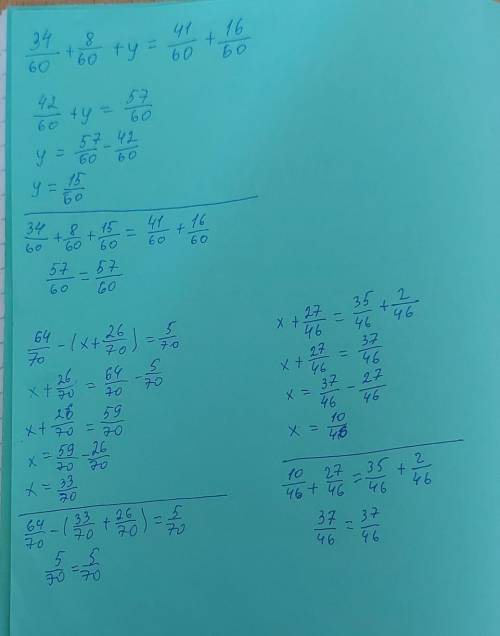 34/60 + 8/60 + y = 41/60 + 16/60
42/60 + y = 57/60
y = 57/60 - 42/60
y = 15/60
34/60 + 8/60 + 15/60 = 41/60 + 16/60
57/60 = 57/60
64/70 - (x + 26/70) = 5/70
x + 26/70 = 64/70 - 5/70
x + 26/70 = 59/70
x = 59/70 - 26/70
x = 33/70
64/70 - (33/70 + 26/70) = 5/70
5/70 = 5/70
x + 27/46 = 35/46 + 2/46
x + 27/46 = 37/46
x = 37/46 - 27/46
x = 10/46
10/46 + 27/46 = 35/46 + 2/46
37/46 = 37/46